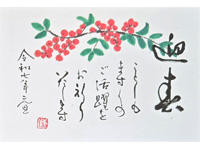 迎春
ことしも
ますますの
ご活躍を
お祈り
いたします
令和七年元旦